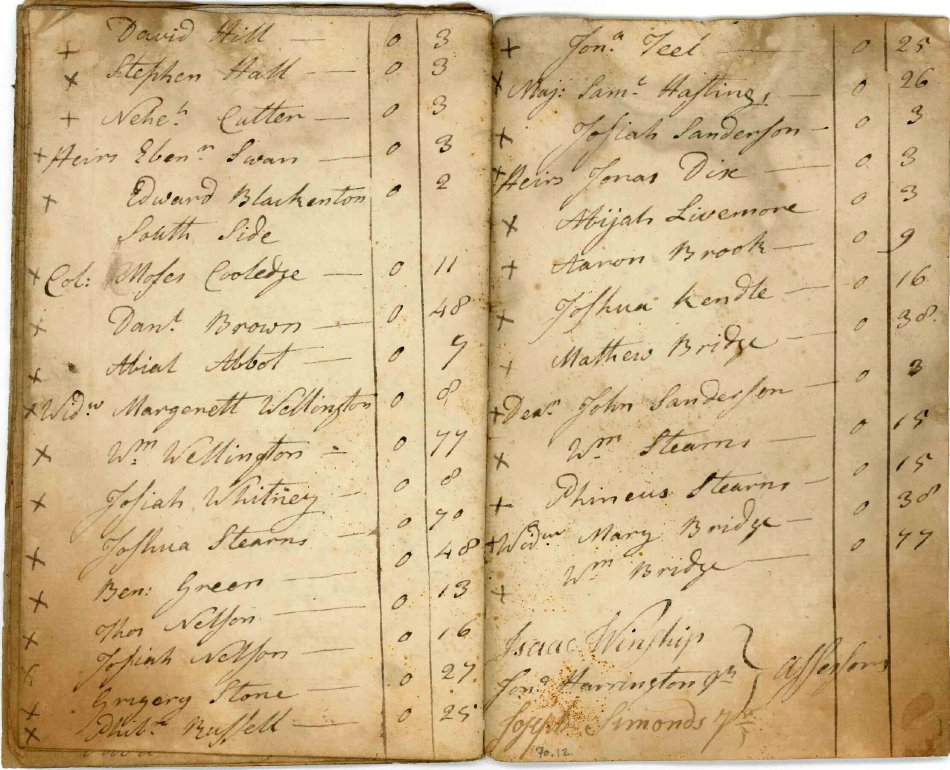 + David Hill — 0 3
x Stephen Hall — 0 3
+ Neheh Cutter — 0 3
+ Heirs Ebenr Swan — 0 3
+ Edward Blackenton 0 2
South Side
x Col: Moses Cooledge — 0 11
x Danl Brown — 0 48
x Abial Abbot — 0 9
x Widw Margerett Wellington 0 8
x Wm Wellington — 0 77
x Josiah Whitney — 0 8
x Joshua Stearns — 0 70
x Ben: Green — 0 48
x Thos Nelson — 0 13
x Josiah Nelson — 0 16
x Grigery Stone — 0 27
x Russell — 0 25
+ Jona Teel — 0 25
x Maj: Saml Hastings — 0 26
+ Josiah Sanderson — 0 3
+ Heirs Jonas Dix — 0 3
x Abijah Livemore 0 3
+ Aaron Brook — 0 9
+ Joshua Kendle — 0 16
+ Mathew Bridge — 0 38
+ Dean John Sanderson — 0 3
x Wm Stearns — 0 15
+ Phineus Stearns — 0 15
+ Widw Mary Bridge — 0 38
+ Wm Bridge — 0 77
Isaac Winship
Jona Harrington Jr } Assessors
Joseph Simonds
70.12